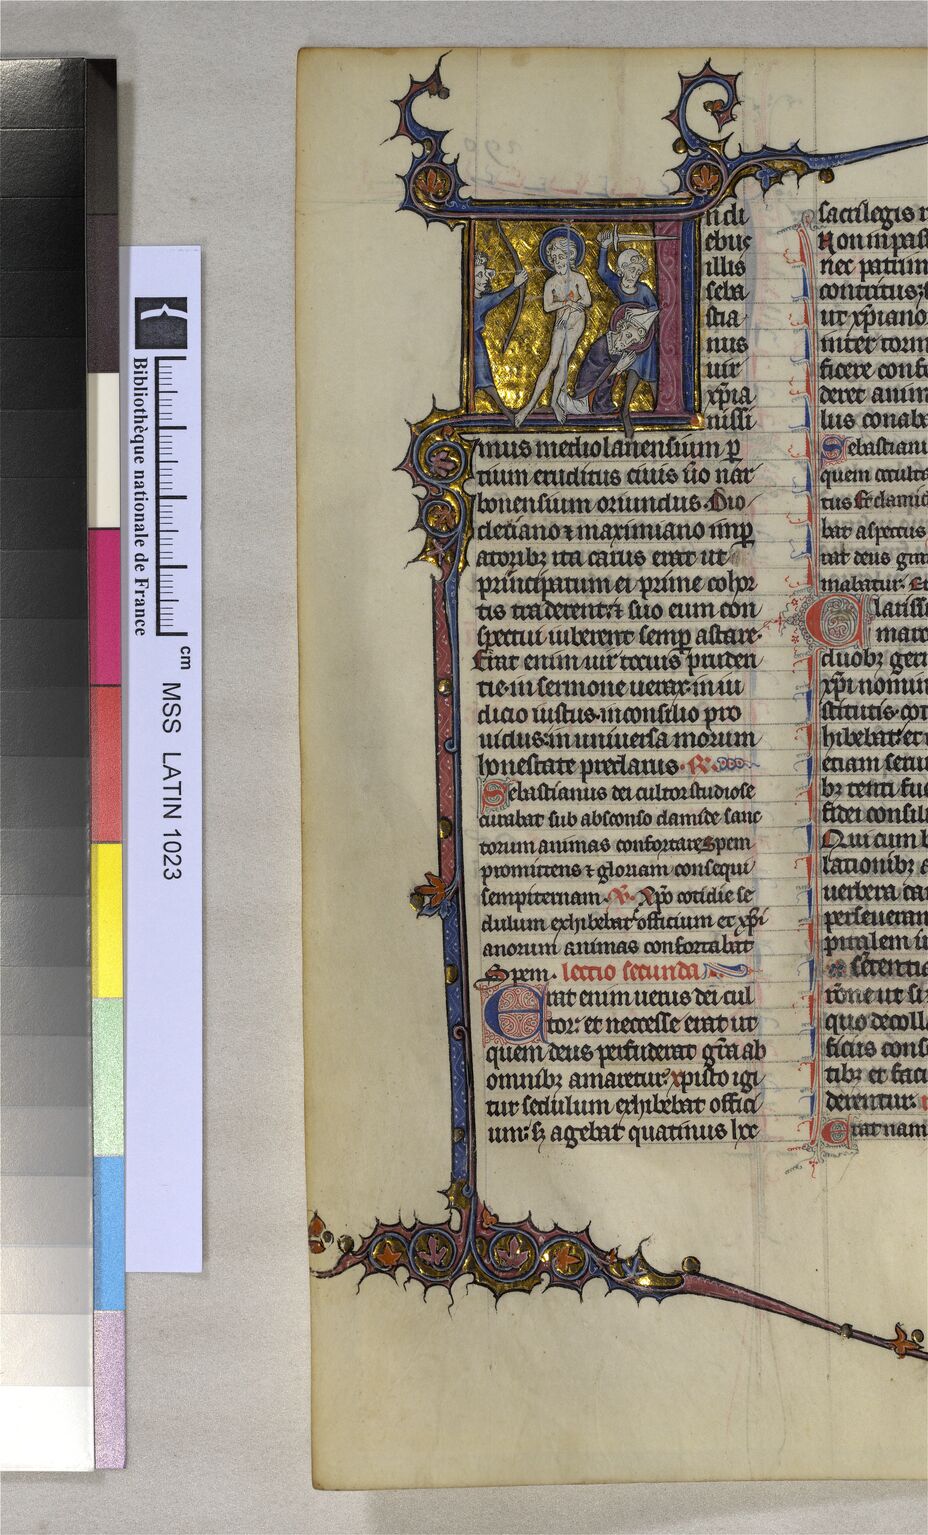 Bibliothèque nationale de France
cm
MSS LATIN 1023
n di
ebus
illis
seba
stia
nus
uir
xp̄ia
nissi
mus mediolanensium p̱
tium eruditus ciuis ūo nar
bonensium oriundus. Dio
cletiano ⁊ maximiano imp̱
atoribꝫ ita carus erat ut
principatum ei prime cohor
tis traderent ⁊ suo eum con
spectui iuberent semp̱ astare.
Erat enim uir totius pruden
tie. in sermone uerax. in iu
dicio iustus. in consilio pro
uidus. in uniuersa morum
honestate preclarus. ℟.
Sebastianus dei cultor studiose
curabat sub absconso clamide sanc
torum animas confortare Spem
promittens ⁊ gloriam consequi
sempiternam. ℣. Xp̄o cotidie se
dulum exhibebat officium et xp̄i
anorum animas confortabat
Spem. lectio secunda
Erat enim uerus dei cul
tor: et necesse erat ut
quem deus perfuderat gr̄a ab
omnibꝫ amaretur. xp̄isto igi
tur sedulum exhibebat offici
um: sꝫ agebat quatinus hoc
sacrilegis
Non in pass
nec patrim
contritus:
ut xp̄iano
inter torm
ficere conf
deret anim
lus conab
Sebastian
quem occult
tus Et
bat aspectus
rat deus gra
mabatur. Et
Clariss
marc
duobꝫ ger
xp̄i nomin
stitutis. cot
hibebat: et
etiam seru
bꝫ tenti fu
fidei consil
Qui cum
lationibꝫ
uerbera
perseueran
pitalem
sententia
rōne ut si
quo decoll
ficiis cons
tibꝫ et faci
derentur.
Erat nam